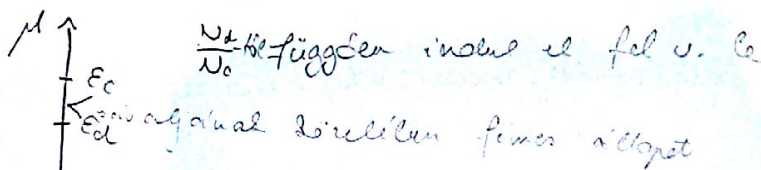 μ N_d/N_c-től függően indul el fel v. le
ε_c
ε_d aljának közelében fémes állapot